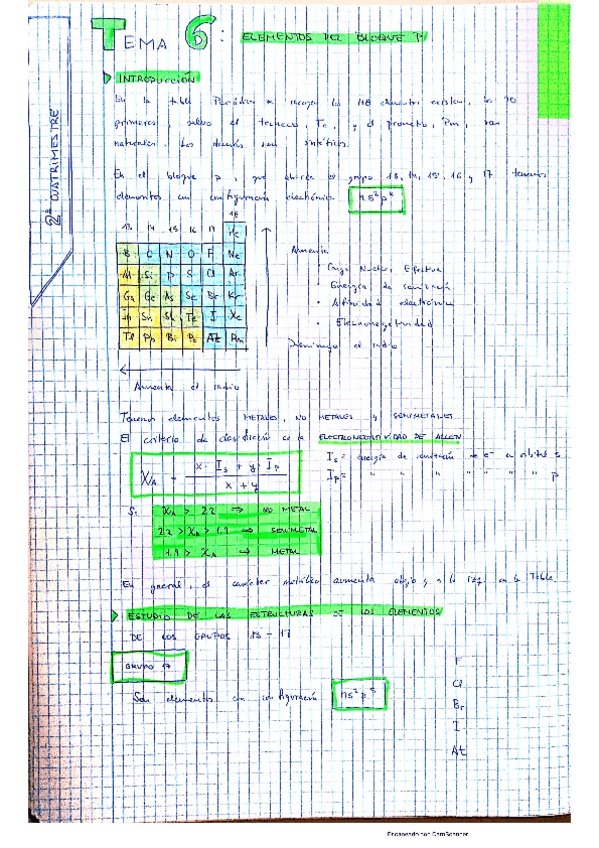 TEMA 6: ELEMENTOS DEL BLOQUE P
INTRODUCCIÓN
En la tabla Periódica se recogen los 118 elementos existen, los 90
primeros, salvo el tecnecio, Tc, y el prometio, Pm, son
naturales. Los demás son sintéticos.
2º CUATRIMESTRE
En el bloque p, que abarca el grupo 13, 14, 15, 16 y 17 tenemos
elementos con configuración electrónica ns²pˣ
13 14 15 16 17 18
He
B C N O F Ne
Al Si P S Cl Ar
Ga Ge As Se Br Kr
In Sn Sb Te I Xe
Tl Pb Bi Po At Rn
Aumenta
· Carga Nuclear Efectiva
· Energía de ionización
· Afinidad electrónica
· Electronegatividad
Disminuye el radio
Aumenta el radio
Tenemos elementos METALES, NO METALES y SEMIMETALES
El criterio de clasificación es la ELECTRONEGATIVIDAD DE ALLEN
X_A = (x · I_s + y · I_p) / (x + y)
I_s = energía de ionización de e⁻ en orbital s
I_p = " " " " " " " p
Si X_A > 2.2 ⇒ NO METAL
2.2 > X_A > 1.9 → SEMIMETAL
1.9 > X_A → METAL
En general, el carácter metálico aumenta abajo y a la izq en la Tabla
ESTUDIO DE LAS ESTRUCTURAS DE LOS ELEMENTOS
DE LOS GRUPOS 13 - 17
GRUPO 17
Son elementos con configuración ns²p⁵
F
Cl
Br
I
At
Escaneado con CamScanner